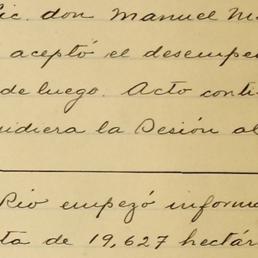 Lic. don Manuel M
aceptó el desempe
de luego. Acto conti
idiera la Sesión al
Río empezó inform
ta de 19,627 hectár